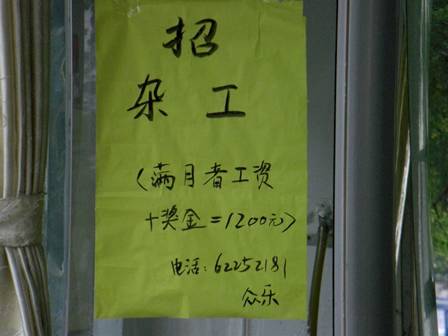 招
杂工
(满月者工资
+奖金=1200元)
电话:62252181
众乐